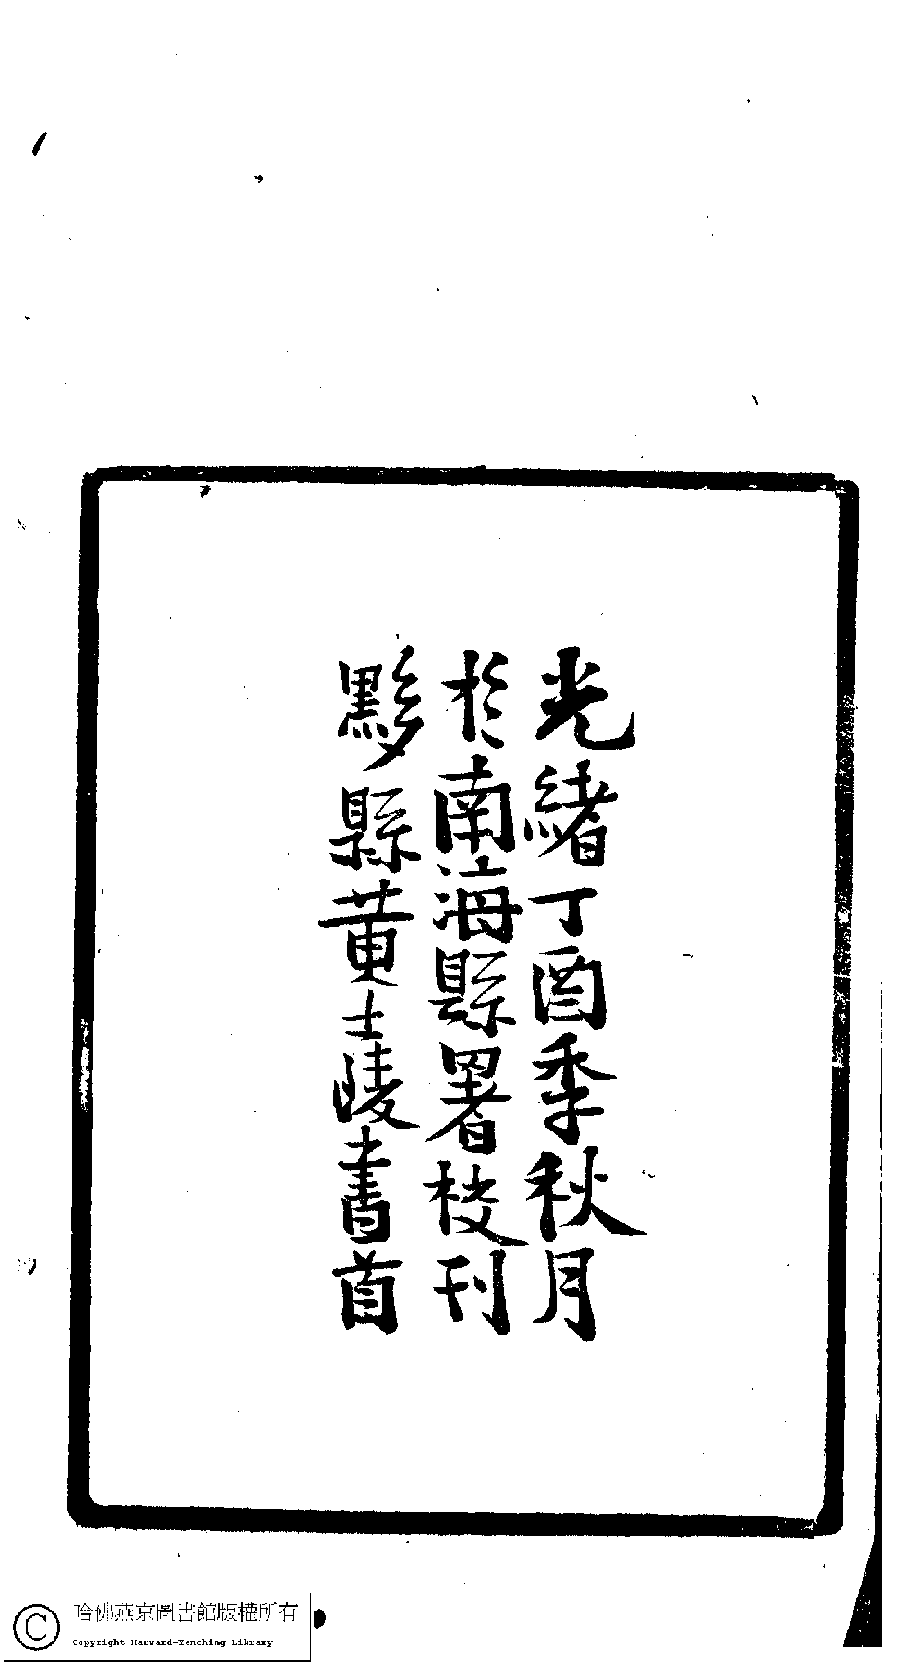 光緒丁酉季秋月
於南海縣署校刊
黟縣黄士陵書首
哈佛燕京圖書館版權所有
Copyright Harvard-Yenching Library